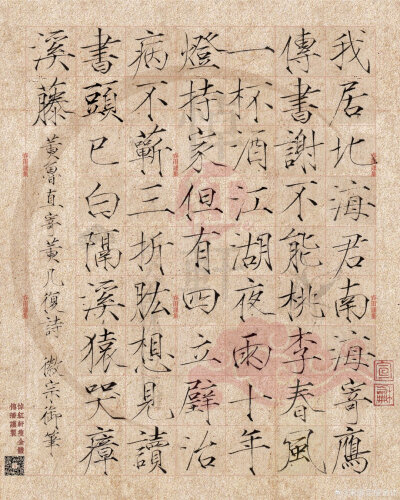 我居北海君南海寄鴈
傳書謝不能桃李春風
一杯酒江湖夜雨十年
燈持家但有四立壁治
病不蘄三折肱想見讀
書頭已白隔溪猿哭瘴
溪藤
黃魯直寄黃几復詩 徽宗御筆